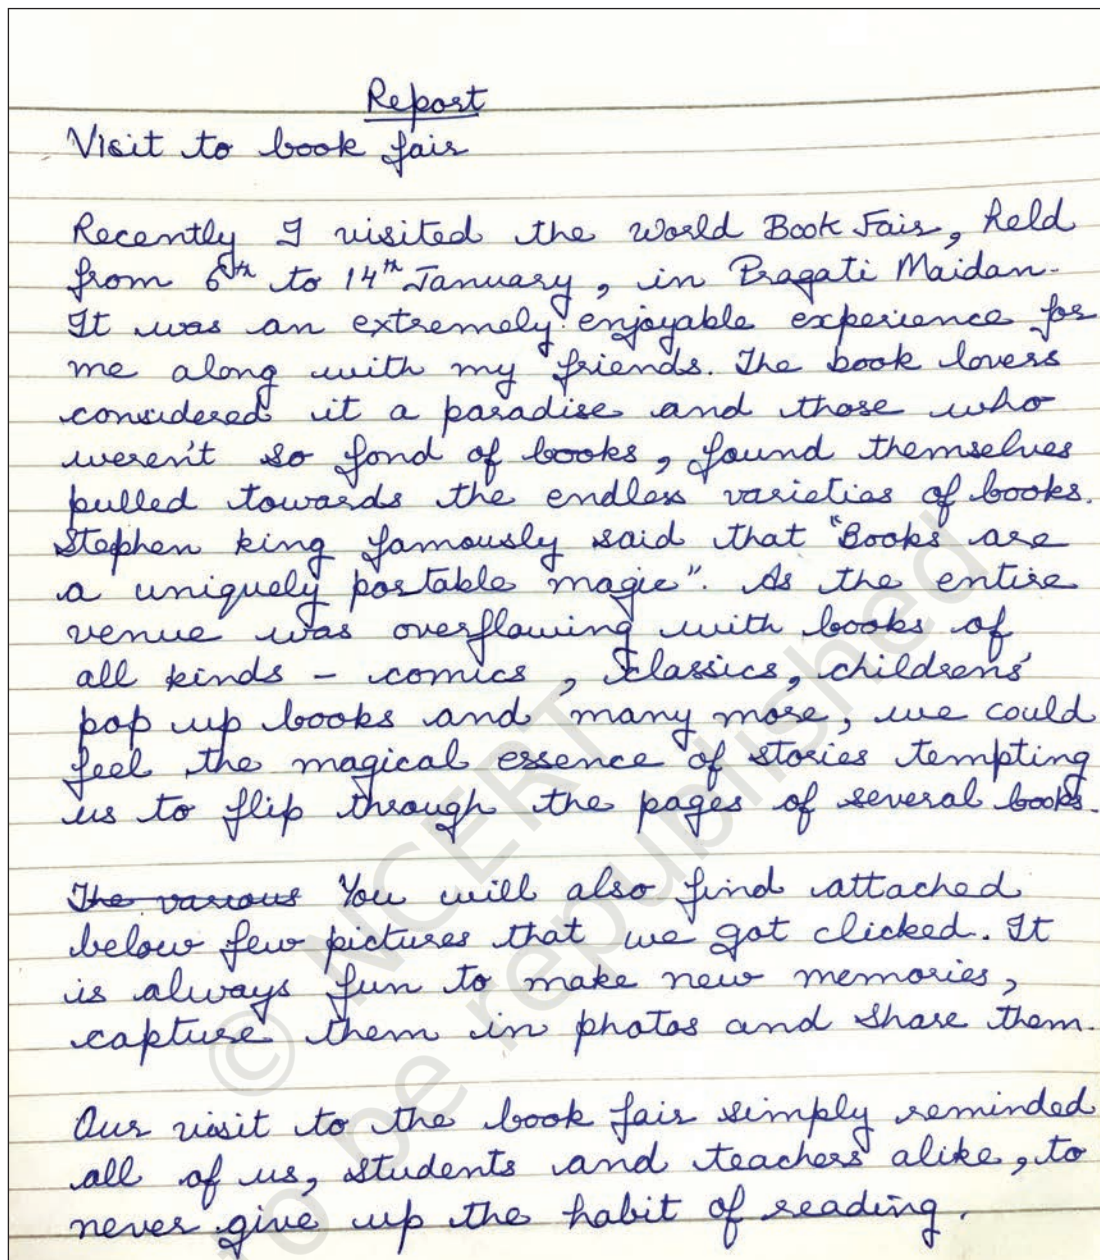 Report
Visit to book fair
Recently I visited the World Book Fair, held
from 6th to 14th January, in Pragati Maidan.
It was an extremely enjoyable experience for
me along with my friends. The book lovers
considered it a paradise and those who
weren't so fond of books, found themselves
pulled towards the endless varieties of books.
Stephen king famously said that "Books are
a uniquely portable magic". As the entire
venue was overflowing with books of
all kinds - comics, classics, childrens'
pop up books and many more, we could
feel the magical essence of stories tempting
us to flip through the pages of several books.
The various You will also find attached
below few pictures that we got clicked. It
is always fun to make new memories,
capture them in photos and share them.
Our visit to the book fair simply reminded
all of us, students and teachers alike, to
never give up the habit of reading.
© NCERT
to be republished